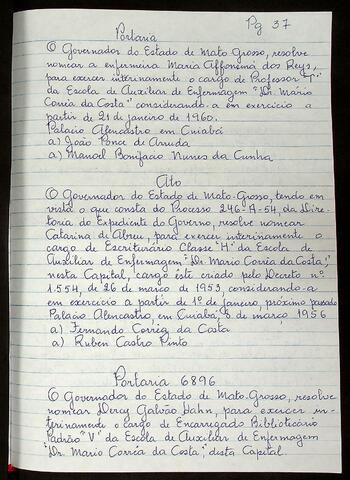 Pg 37
Portaria
O Governador do Estado de Mato Grosso, resolve
nomear a enfermeira Maria Affonsina dos Reys,
para exercer interinamente o cargo de Professor "I"
da Escola de Auxiliar de Enfermagem "Dr. Mário
Corrêa da Costa" considerando-a em exercício a
partir de 21 de janeiro de 1960.
Palacio Alencastro em Cuiabá
a) João Ponce de Arruda
a) Manoel Bonifacio Nunes da Cunha
Ato
O Governador do Estado de Mato-Grosso, tendo em
vista o que consta do Processo 246-A-54, da Dire-
toria do Expediente do Governo, resolve nomear
Catarina de Abreu, para exercer interinamente o
cargo de Escriturário Classe "H" da Escola de
Auxiliar de Enfermagem "Dr. Mario Corrêa da Costa",
nesta Capital, cargo êste criado pelo Decreto nº
1.554, de 26 de março de 1953, considerando-a
em exercício a partir de 1º de janeiro, próximo passado
Palacio Alencastro, em Cuiabá, de março 1956
a) Fernando Corrêa da Costa
a) Ruben Castro Pinto
Portaria 6896
O Governador do Estado de Mato-Grosso, resolve
nomear Dercy Galvão Dahn, para exercer in-
terinamente o cargo de Encarregado Bibliotecário
Padrão "V" da Escola de Auxiliar de Enfermagem
"Dr. Mario Corrêa da Costa", desta Capital